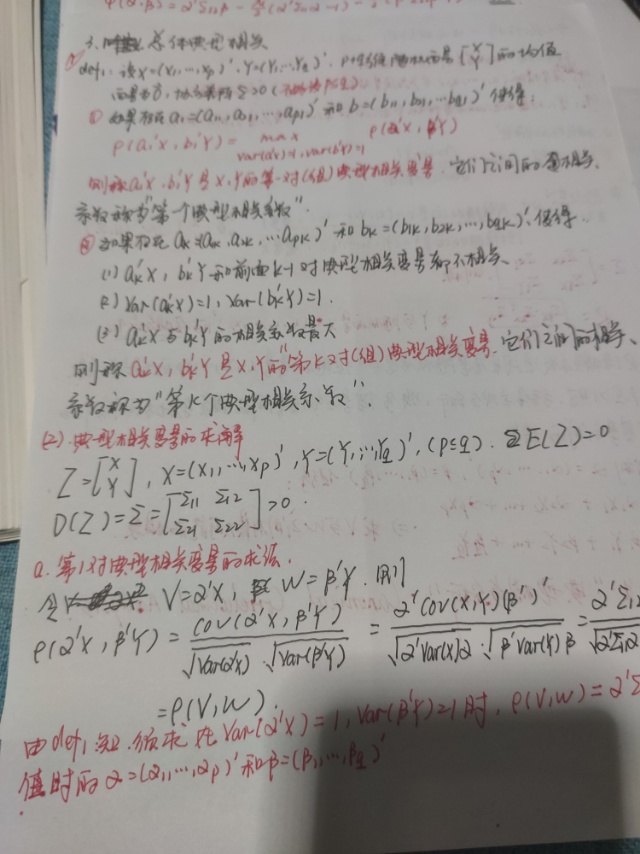 φ(α,β)=α'Σ₁₂β-
3. 总体典型相关
def₁. 设X=(X₁,…,Xp)', Y=(Y₁,…,Yq)', p+q维随机向量[X Y]的均值
向量为0, 协方差阵Σ>0
① 如果存在a₁=(a₁₁,a₂₁,…,ap₁)'和b₁=(b₁₁,b₂₁,…,bq₁)'使得
ρ(a₁'X,b₁'Y)= max ρ(α'X,β'Y)
var(α'X)=1,var(β'Y)=1
则称a₁'X,b₁'Y是X,Y的第一对(组)典型相关变量,它们之间的相关
系数称为"第一个典型相关系数".
② 如果存在ak=(a1k,a2k,…,apk)'和bk=(b1k,b2k,…,bqk)'使得
(1) ak'X,bk'Y和前面k-1对典型相关变量都不相关、
(2) Var(ak'X)=1, Var(bk'Y)=1.
(3) ak'X与bk'Y的相关系数最大
则称ak'X,bk'Y是X,Y的"第k对(组)典型相关变量.它们之间的相关、
系数称为"第k个典型相关系数".
(2).典型相关变量的求解
Z=[X Y], X=(X₁,…,Xp)', Y=(Y₁,…,Yq)', (p≤q). E(Z)=0
D(Z)=Σ=[Σ₁₁ Σ₁₂ Σ₂₁ Σ₂₂]>0.
a.第1对典型相关变量的求法.
令 V=α'X, W=β'Y. 则
ρ(α'X,β'Y)= cov(α'X,β'Y) / √Var(α'X)·√Var(β'Y) = α'Cov(X,Y)(β')' / √α'Var(X)α·√β'Var(Y)β = α'Σ₁₂ / √α'Σ
=ρ(V,W).
由def₁知.须求在Var(α'X)=1,Var(β'Y)=1时,ρ(V,W)=α'Σ
值时的α=(α₁,…,αp)'和β=(β₁,…,βq)'